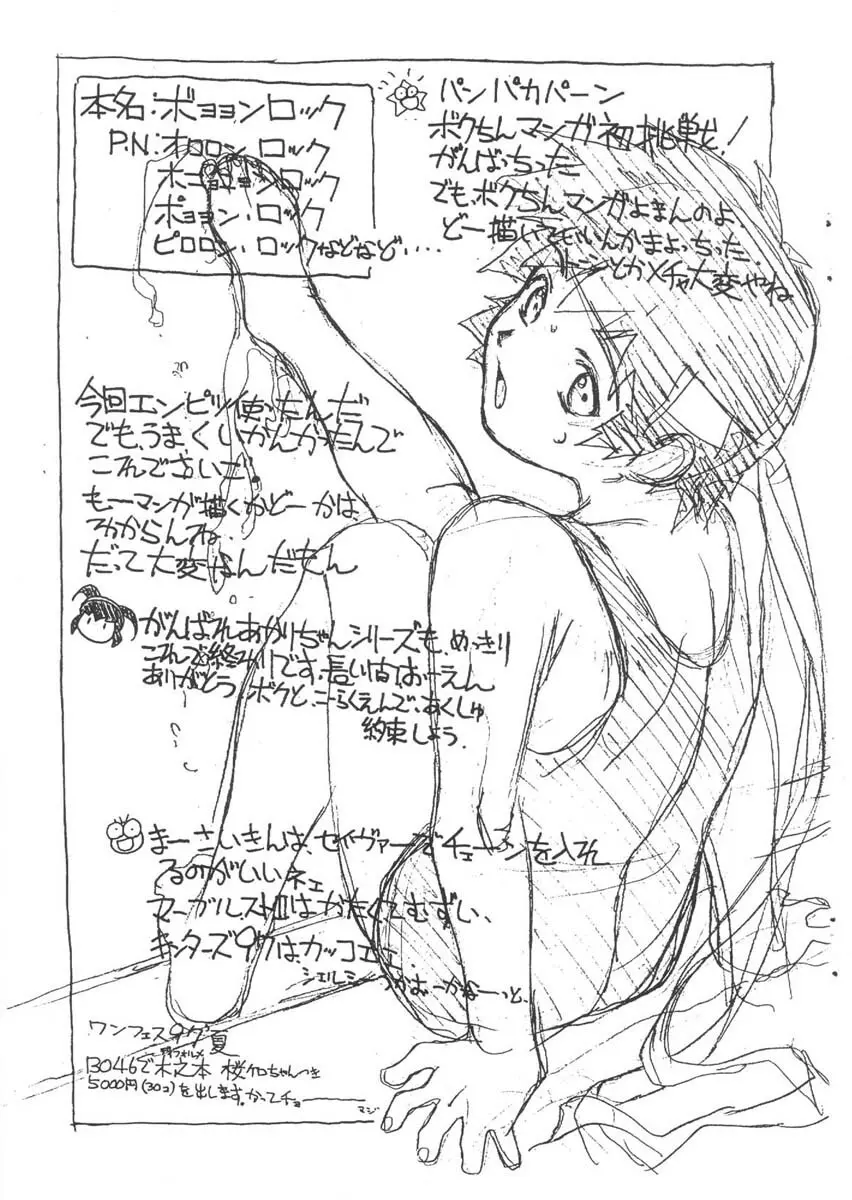 本名:ボョョンロック
P.N:オロロン ロック
ボニョョョン ロック
ポョョン・ロック
ピロロン・ロックなどなど....
パンパカパーン
ボクちんマンガ初挑戦!
がんばっちった
でも、ボクちんマンガよまんのよ、
どー描いていいんかまよっちった.
とかメチャ大変やね
今回エンピツ使ったんだ
でも、うまくいかんかったんで
これでさいご.
もーマンガ描くかどーかは、
わからんね..
だって大変なんだもん
がんばれあかりちゃんシリーズも、めっきり
これで終わりです.長い間おーえん
ありがとう.ボクと、こーらくえんで、あくしゅ
約束しよう.
まーさいきんは、セイヴァーでチェーンを入れ
るのがいいネェ
マーヴルスト2はかたくてむずい、
キンターズ97は、カッコエー
シェルミーつかおーかなーっと、
ワンフェス97夏
B046で木之本 桜ケロちゃんつき
5000円(30コ)を出します.かってチョ———
マジ